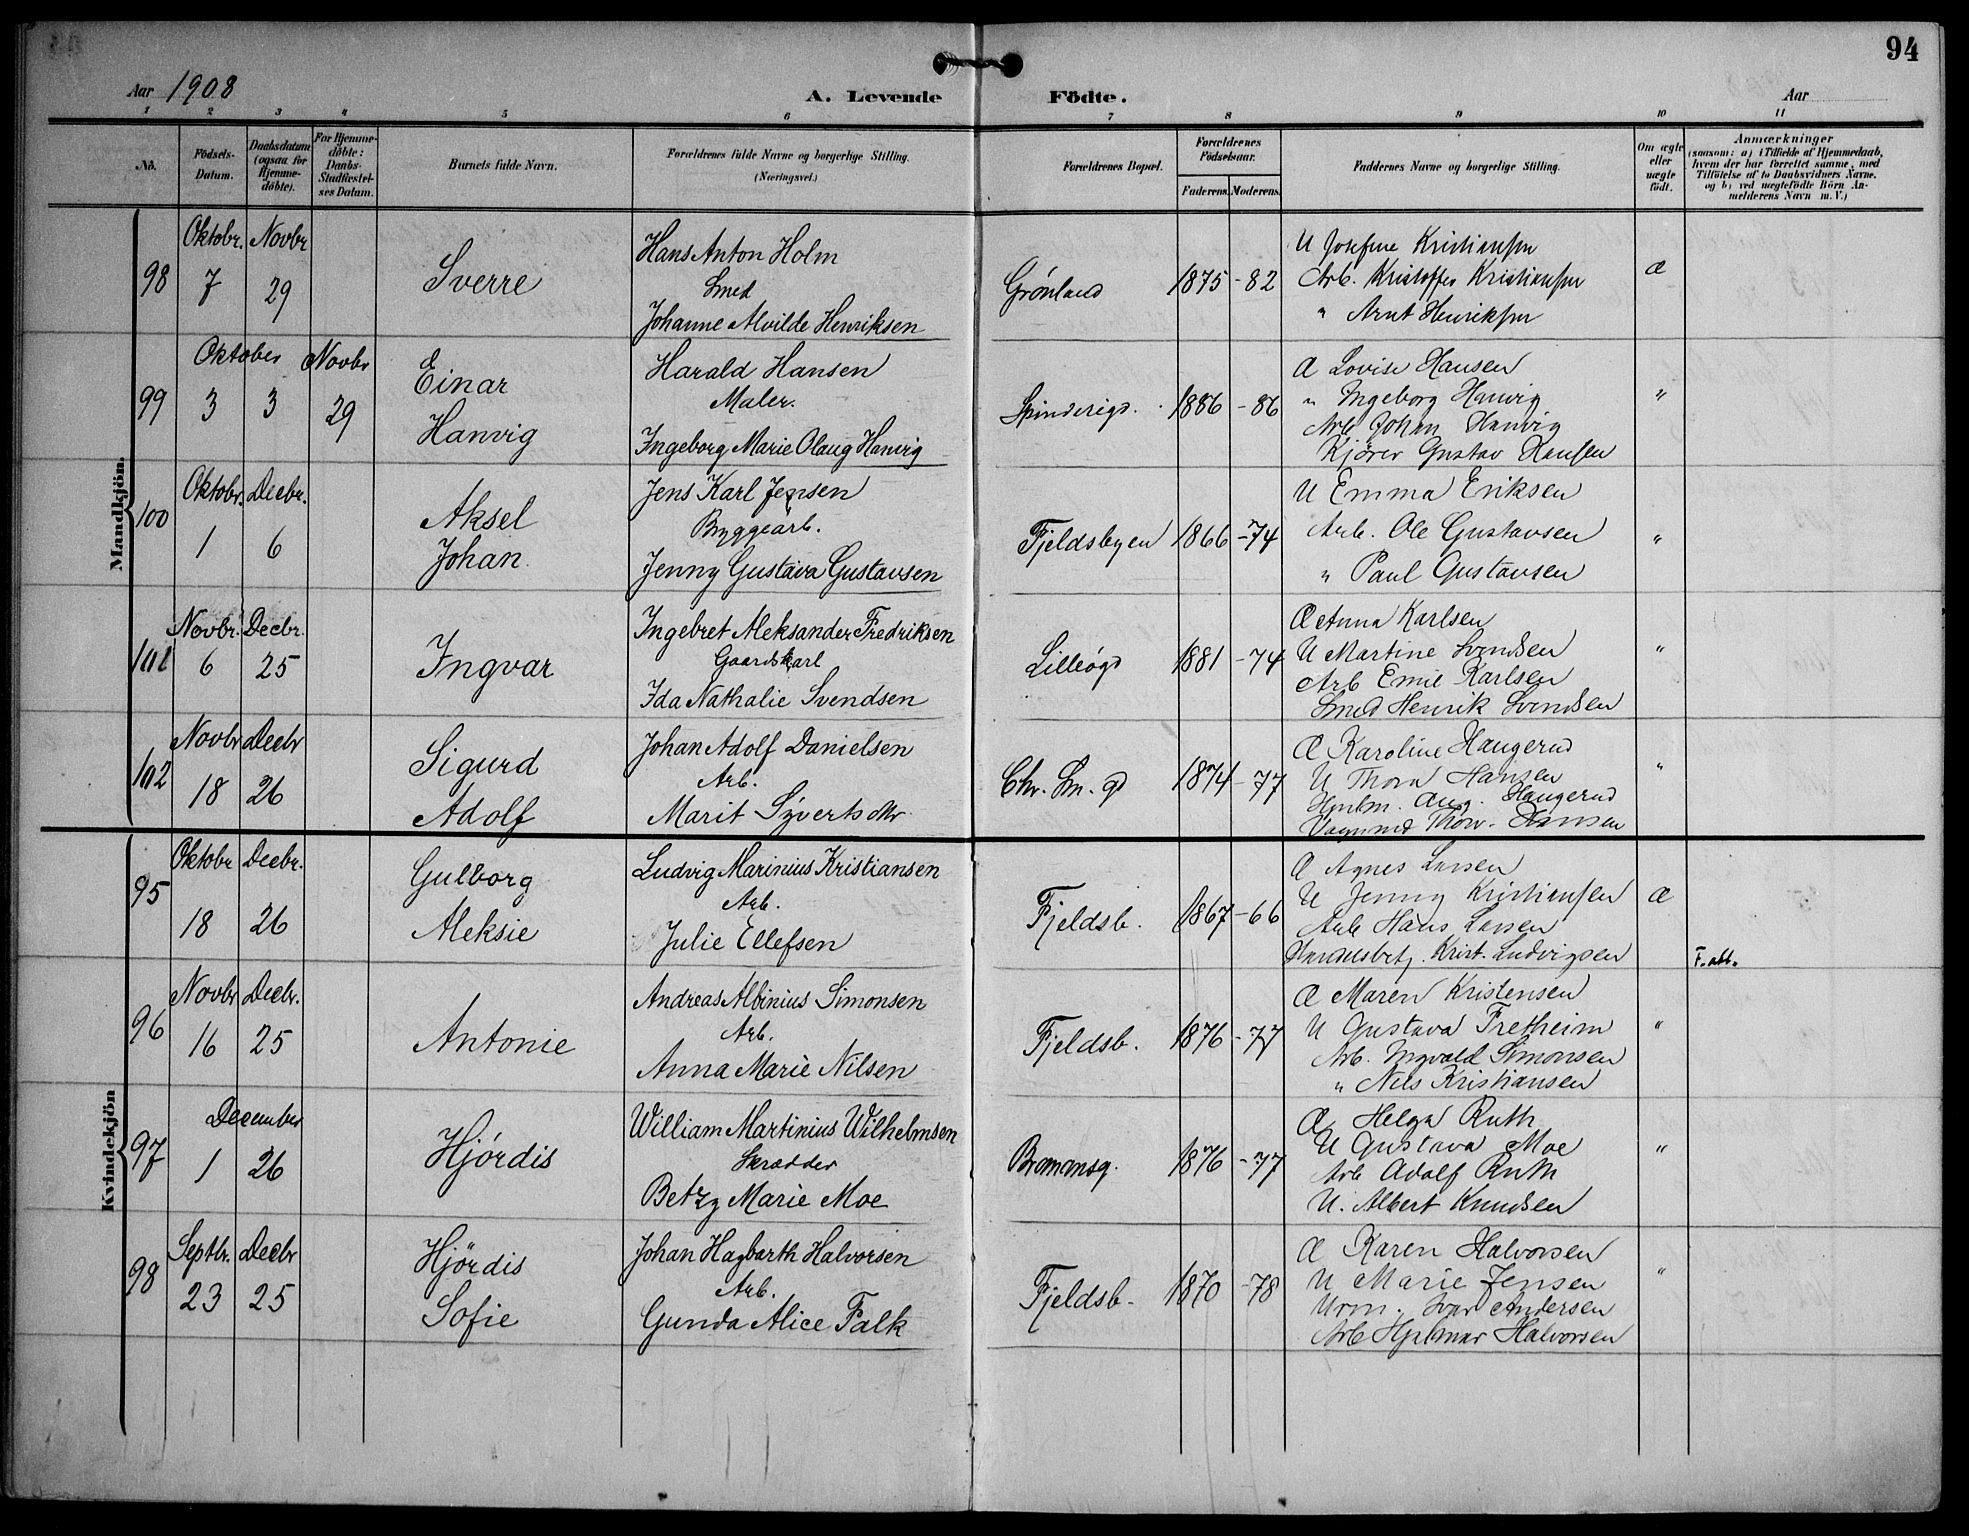 94
Aar 1908
A. Levende Födte.
Aar
1 2 3 4 5 6 7 8 9 10 11
No.
Födsels-Datum.
Daabsdatum (ogsaa for Hjemme-döbte).
For Hjemme-döbte: Daabs-Stadfæstel-ses Datum.
Barnets fulde Navn.
Forældrenes fulde Navne og borgerlige Stilling.
(Næringsvei.)
Forældrenes Bopæl.
Forældrenes Födselsaar.
Faderens. Moderens.
Faddernes Navne og borgerlige Stilling.
Om ægte eller uægte födt.
Anmærkninger
(saasom: a) i Tilfælde af Hjemmedaab,
hvem der har forrettet samme, med
Tilföielse af to Daabsvidners Navne.
og b) ved uægtefödte Börn An-
melderens Navn m. V.)
Mandkjön.
98
Oktobr. 7
Novbr 29
Sverre
Hans Anton Holm
Smed
Johanne Alvilde Henriksen
Grønland
1875 -82
U Josefine Kristiansen
Arb. Kristoffer Kristiansen
" Arnt Henriksen
Æ
99
Oktober 3 3
Novbr 29
Einar
Hanvig
Harald Hansen
Maler.
Ingeborg Marie Olaug Hanvig
Spinderigd.
1886 -86
Æ Lovise Hansen
" Ingeborg Hanvig
Arb Johan Hanvig
Kjører Gustav Hansen
"
100
Oktobr. 1
Decbr. 6
Aksel
Johan
Jens Karl Jensen
Byggearb.
Jenny Gustava Gustavsen
Fjeldsbyen
1866 -74
U Emma Eriksen
Arb. Ole Gustavsen
" Paul Gustavsen
"
101
Novbr. 6
Decbr. 25
Ingvar
Ingebret Aleksander Fredriksen
Gaardskarl
Ida Nathalie Svendsen
Lilleøgd
1881 -74
Æ Anna Karlsen
U Martine Svendsen
Arb Emil Karlsen
Smed Henrik Svendsen
"
102
Novbr 18
Decbr 26
Sigurd
Adolf
Johan Adolf Danielsen
Arb.
Marit Syvertsdtr
Chr. Sm. gd
1874 -77
Æ Karoline Haugerud
U Thora Hansen
Aug. Haugerud
Thorv. Hansen
"
Kvindekjön
95
Oktobr 18
Decbr. 26
Gulborg
Aleksie
Ludvig Marinius Kristiansen
Arb.
Julie Ellefsen
Fjeldsb.
1867 -66
Æ Agnes Larsen
U Jenny Kristiansen
Arb Hans Larsen
Krist. Ludvigsen
Æ
F. att.
96
Novbr 16
Decbr. 25
Antonie
Andreas Albinius Simonsen
Arb.
Anna Marie Nilsen
Fjeldsb.
1876 -77
Æ Maren Kristensen
U Gustava Fretheim
Arb. Ingvald Simonsen
" Nils Kristiansen
"
97
December 1 26
Hjørdis
William Martinius Wilhelmsen
Skrædder
Betzy Marie Moe
Bromansg.
1876 -77
Æ Helga Ruth
U Gustava Moe
Arb Adolf Ruth
U. Albert Knudsen
"
98
Septbr. 23
Decbr 25
Hjördis
Sofie
Johan Hagbarth Halvorsen
Arb.
Gunda Alice Falk
Fjeldsb.
1870 -78
Æ Karen Halvorsen
U Marie Jensen
Urm. Ivar Andersen
Arb Hjelmar Halvorsen
"